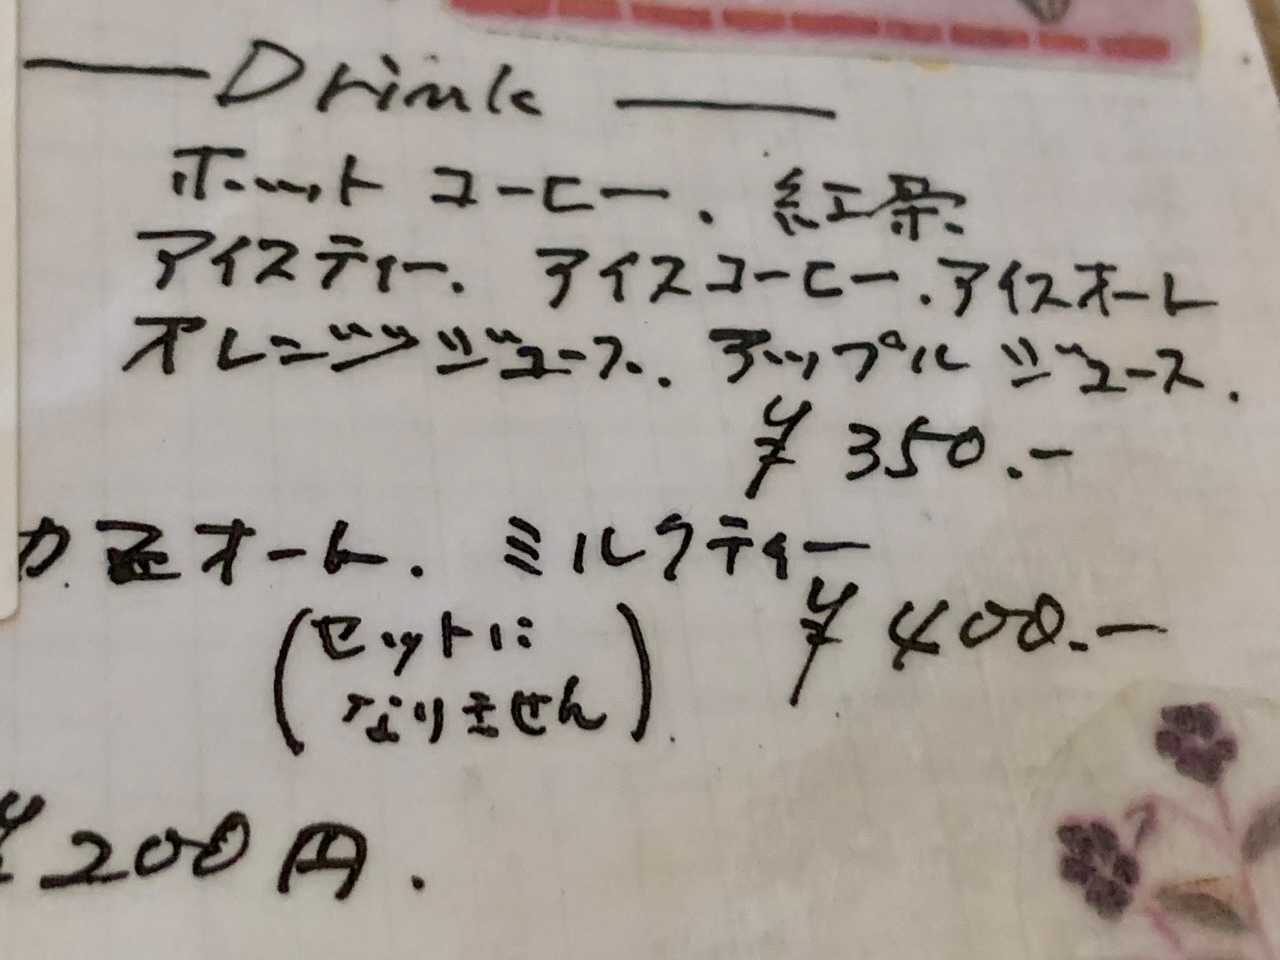 Drink
ホットコーヒー. 紅茶
アイスティー. アイスコーヒー. アイスオーレ
オレンジジュース. アップルジュース.
¥350.-
カフェオーレ. ミルクティー
¥400.-
(セットに
なりません)
¥200円.